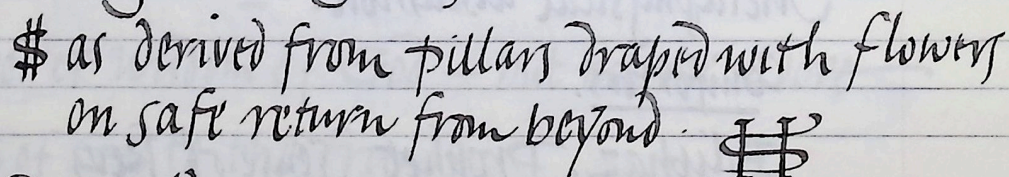 $ as derived from pillars draped with flowers
on safe return from beyond.